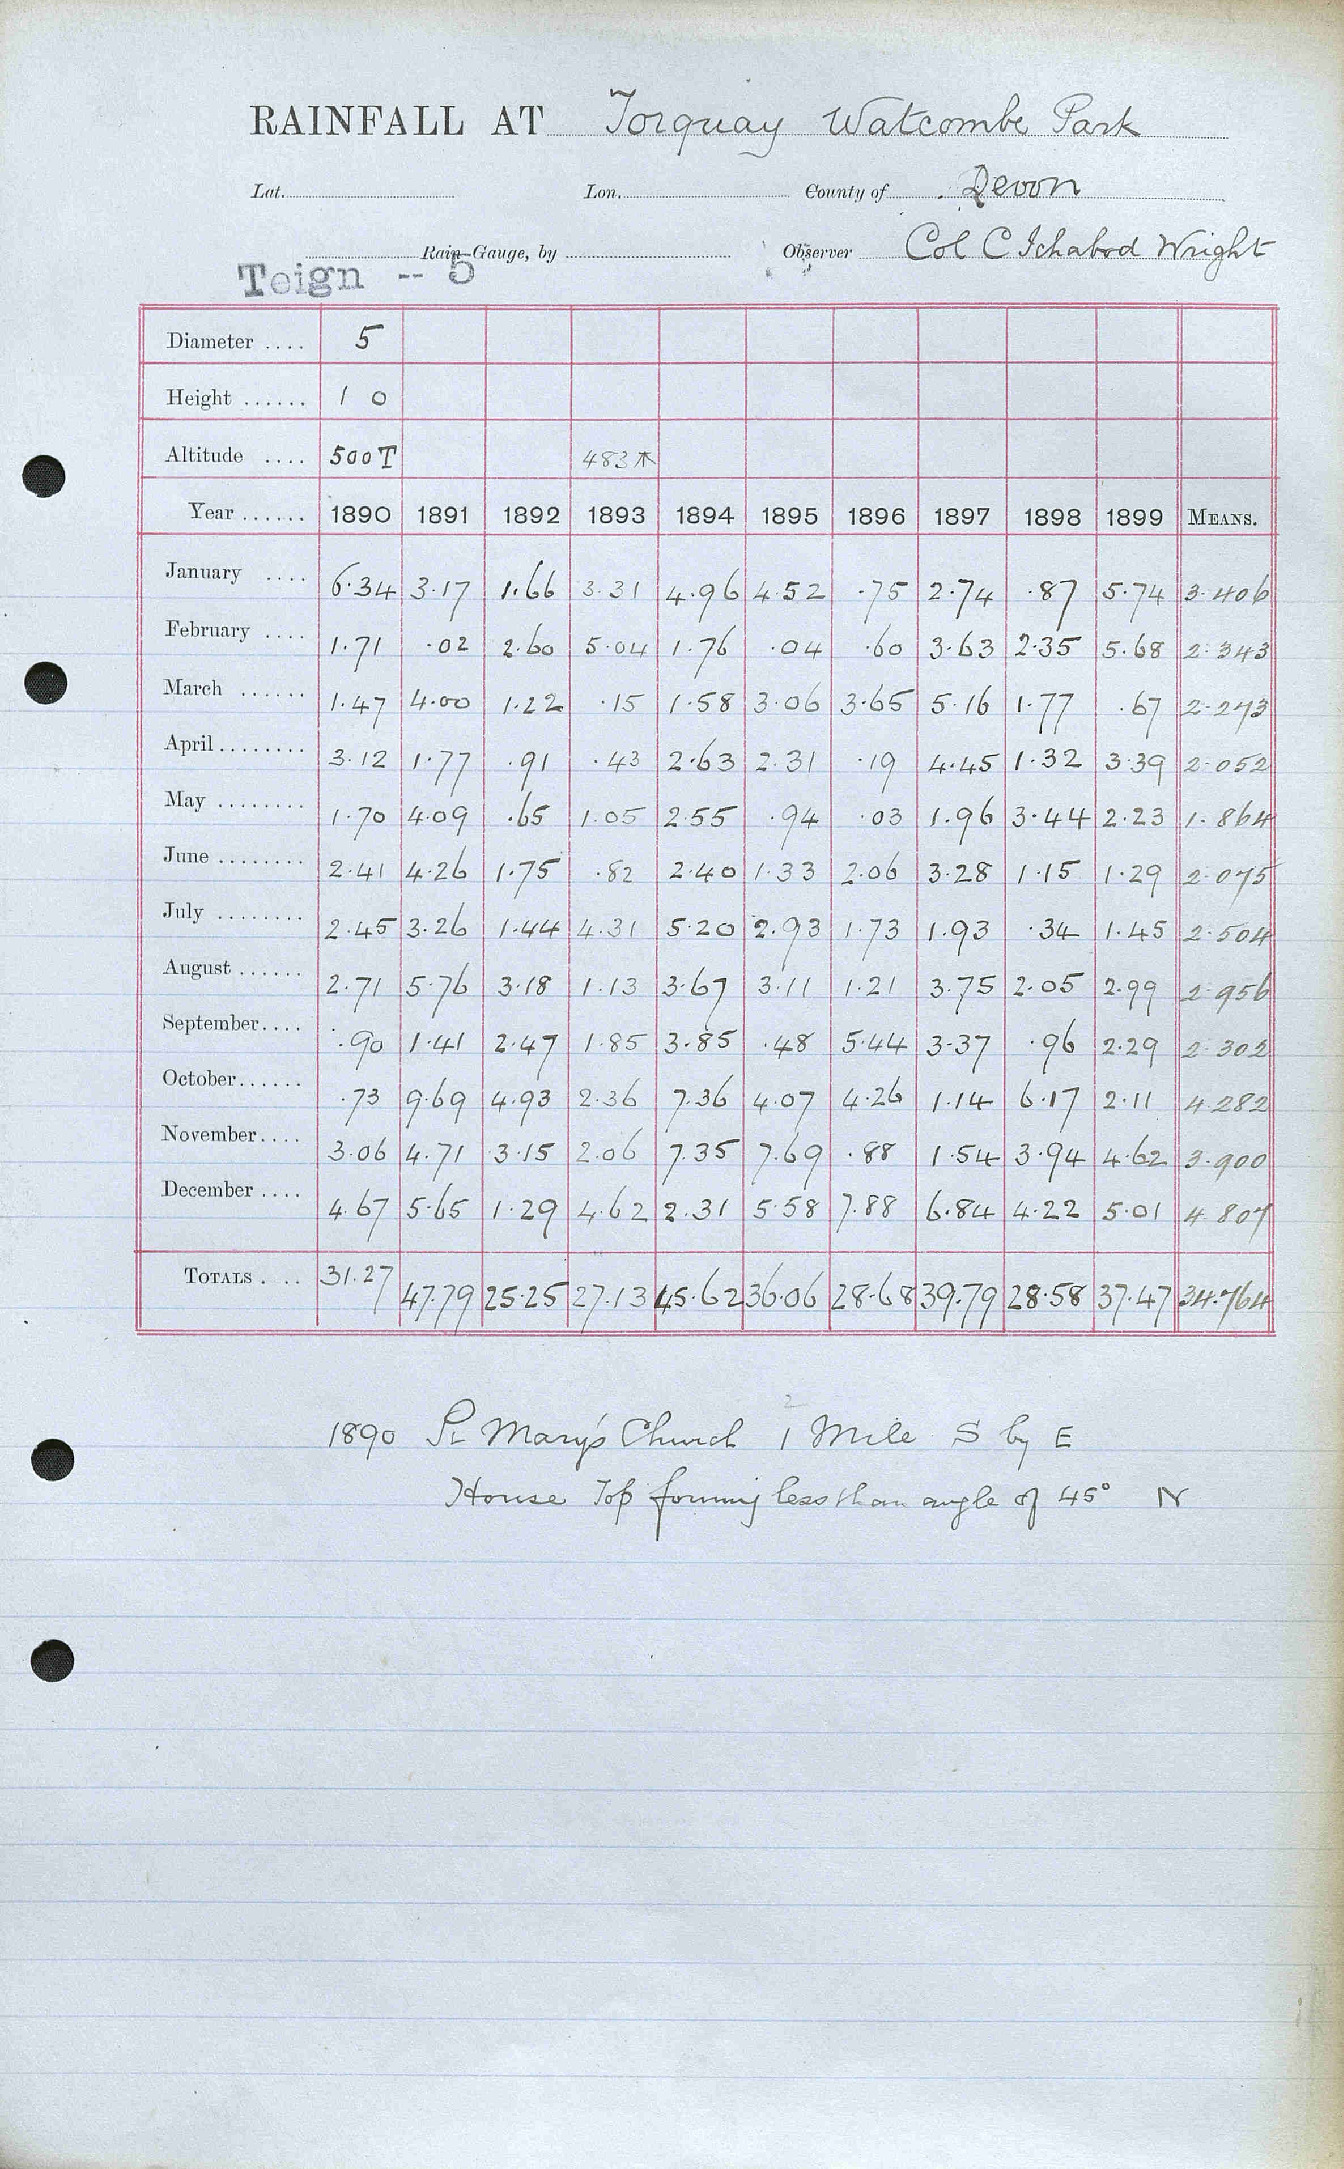 RAINFALL AT Torquay Watcombe Park
Lat. Lon. County of Devon
Rain-Gauge, by Observer Col C Ichabod Wright
Teign -- 5
Diameter .... 5
Height ...... 1 0
Altitude .... 500T 483
Year ...... 1890 1891 1892 1893 1894 1895 1896 1897 1898 1899 MEANS.
January .... 6.34 3.17 1.66 3.31 4.96 4.52 .75 2.74 .87 5.74 3.406
February .... 1.71 .02 2.60 5.04 1.76 .04 .60 3.63 2.35 5.68 2.343
March ...... 1.47 4.00 1.22 .15 1.58 3.06 3.65 5.16 1.77 .67 2.273
April ........ 3.12 1.77 .91 .43 2.63 2.31 .19 4.45 1.32 3.39 2.052
May ........ 1.70 4.09 .65 1.05 2.55 .94 .03 1.96 3.44 2.23 1.864
June ........ 2.41 4.26 1.75 .82 2.40 1.33 2.06 3.28 1.15 1.29 2.075
July ........ 2.45 3.26 1.44 4.31 5.20 2.93 1.73 1.93 .34 1.45 2.504
August ...... 2.71 5.76 3.18 1.13 3.67 3.11 1.21 3.75 2.05 2.99 2.956
September .... .90 1.41 2.47 1.85 3.85 .48 5.44 3.37 .96 2.29 2.302
October ...... .73 9.69 4.93 2.36 7.36 4.07 4.26 1.14 6.17 2.11 4.282
November .... 3.06 4.71 3.15 2.06 7.35 7.69 .88 1.54 3.94 4.62 3.900
December .... 4.67 5.65 1.29 4.62 2.31 5.58 7.88 6.84 4.22 5.01 4.807
TOTALS .... 31.27 47.79 25.25 27.13 45.62 36.06 28.68 39.79 28.58 37.47 34.764
1890 St Mary's Church 1 Mile S by E
House Top forming less than angle of 45° N